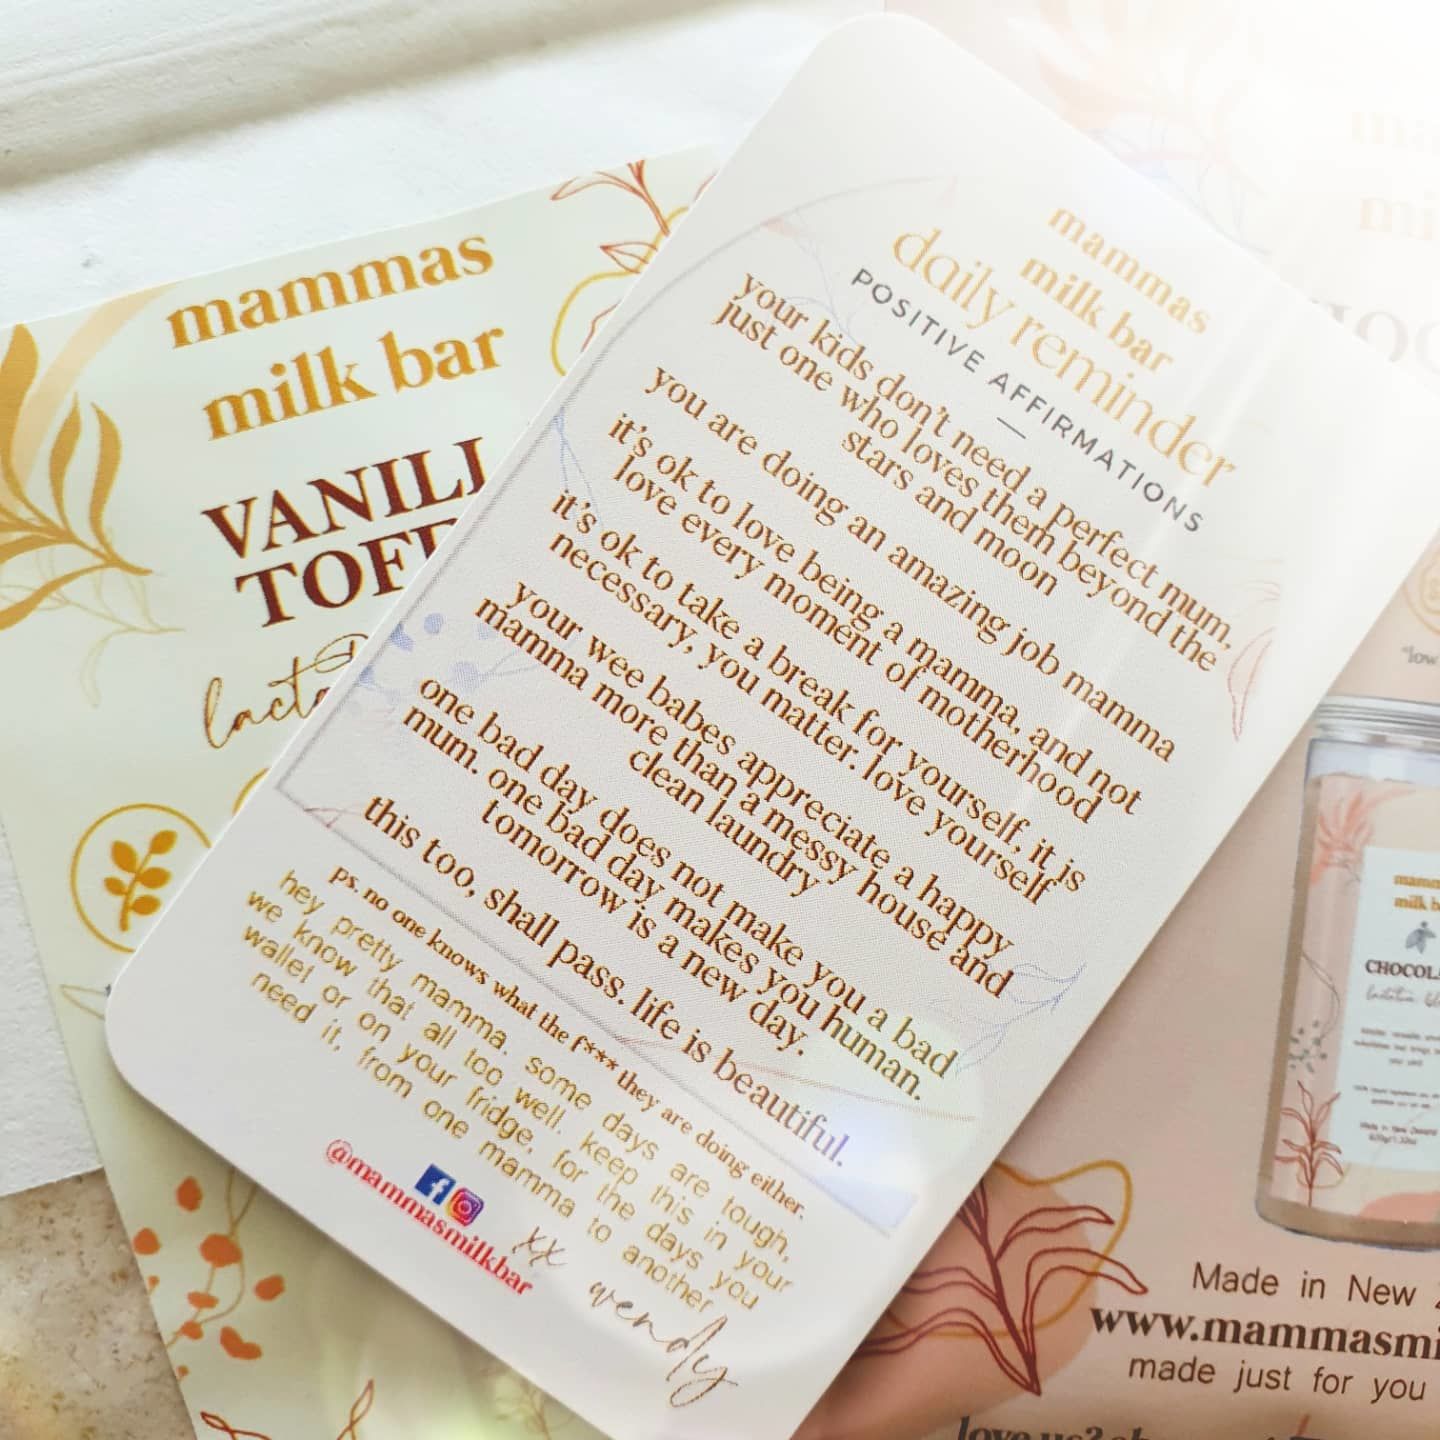 mammas
milk bar
VANILL
TOFF
lacta
mammas
milk bar
daily reminder
POSITIVE AFFIRMATIONS
your kids don't need a perfect mum,
just one who loves them beyond the
stars and moon
you are doing an amazing job mamma
it's ok to love being a mamma, and not
love every moment of motherhood
it's ok to take a break for yourself, it is
necessary, you matter. love yourself
your wee babes appreciate a happy
mamma more than a messy house and
clean laundry
one bad day does not make you a bad
mum. one bad day makes you human.
tomorrow is a new day.
this too, shall pass. life is beautiful.
ps. no one knows what the f*** they are doing either.
hey pretty mamma, some days are tough,
we know that all too well. keep this in your
wallet or on your fridge, for the days you
need it, from one mamma to another
@mammasmilkbar
xx wendy
"low
mamm
milk b
CHOCOL
Made in New
www.mammasmi
made just for you
love us?